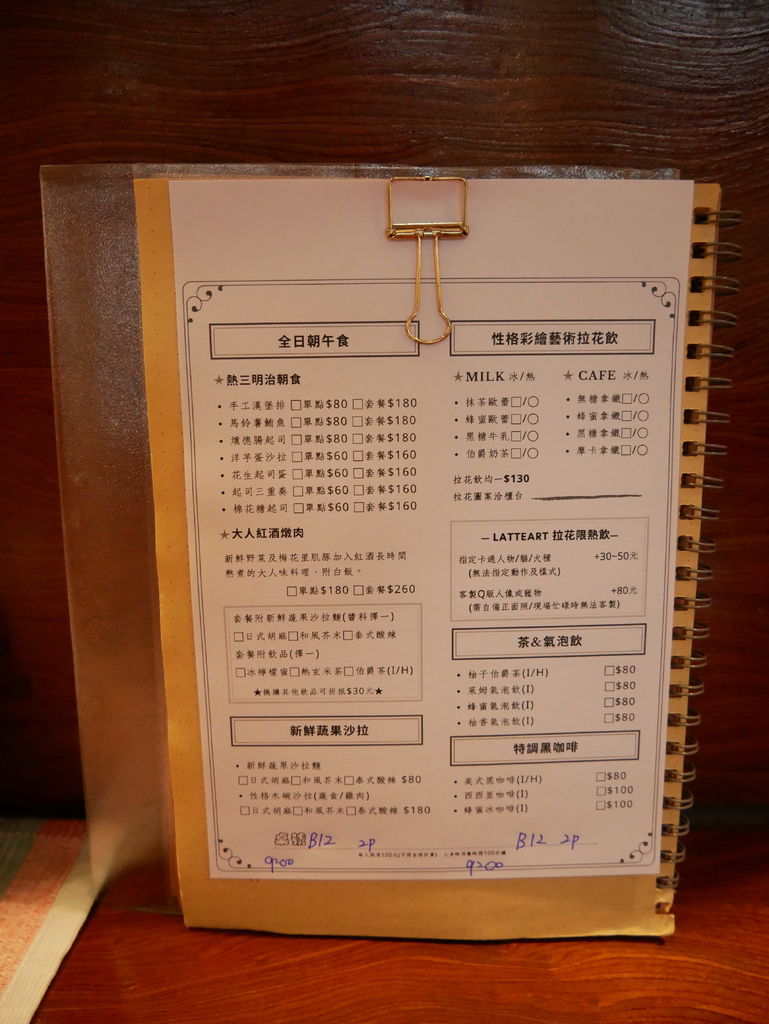 全日朝午食
★熱三明治朝食
• 手工漢堡排 □單點$80 □套餐$180
• 馬鈴薯鮪魚 □單點$80 □套餐$180
• 燻德腸起司 □單點$80 □套餐$180
• 洋芋蛋沙拉 □單點$60 □套餐$160
• 花生起司蛋 □單點$60 □套餐$160
• 起司三重奏 □單點$60 □套餐$160
• 棉花糖起司 □單點$60 □套餐$160
★大人紅酒燉肉
新鮮野菜及梅花里肌豚加入紅酒長時間
熬煮的大人味料理，附白飯。
□單點$180 □套餐$260
套餐附新鮮蔬果沙拉麵(醬料擇一)
□日式胡麻□和風芥末□泰式酸辣
套餐附飲品(擇一)
□冰檸檬蜜□熱玄米茶□伯爵茶(I/H)
★換購其他飲品可折抵$30元★
新鮮蔬果沙拉
• 新鮮蔬果沙拉麵
□日式胡麻□和風芥末□泰式酸辣 $80
• 性格木碗沙拉(蔬食/雞肉)
□日式胡麻□和風芥末□泰式酸辣 $180
性格彩繪藝術拉花飲
★MILK 冰/熱
• 抹茶歐蕾□/○
• 蜂蜜歐蕾□/○
• 黑糖牛乳□/○
• 伯爵奶茶□/○
★ CAFE 冰/熱
• 無糖拿鐵□/○
• 蜂蜜拿鐵□/○
• 黑糖拿鐵□/○
• 摩卡拿鐵□/○
拉花飲均一$130
拉花圖案洽櫃台
— LATTEART 拉花限熱飲—
指定卡通人物/貓/犬種 +30~50元
(無法指定動作及樣式)
客製Q版人像或寵物 +80元
(需自備正面照/現場忙碌時無法客製)
茶&氣泡飲
• 柚子伯爵茶(I/H) □$80
• 萊姆氣泡飲(I) □$80
• 蜂蜜氣泡飲(I) □$80
• 柚香氣泡飲(I) □$80
特調黑咖啡
• 美式黑咖啡(I/H) □$80
• 西西里咖啡(I) □$100
• 蜂蜜冰咖啡(I) □$100
桌號 B12 2P
B12 2P
每人低消100元(不得合併計算) 入座時用餐時間100分鐘
9:00
9:00